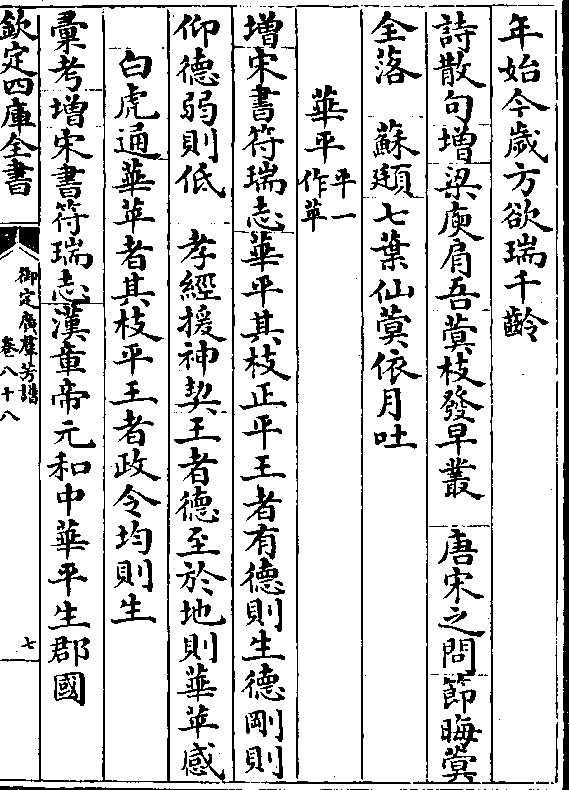 年始今歲方欲瑞千齡
詩散句增梁庾肩吾蓂枝發早叢　唐宋之問節晦蓂
全落　蘇頲七葉仙蓂依月吐
華平平一作苹
增宋書符瑞志華平其枝正平王者有德則生德剛則
仰德弱則低　孝經援神契王者德至於地則華苹感
白虎通華苹者其枝平王者政令均則生
彚考增宋書符瑞志漢章帝元和中華平生郡國
欽定四庫全書
御定廣羣芳譜
卷八十八
七